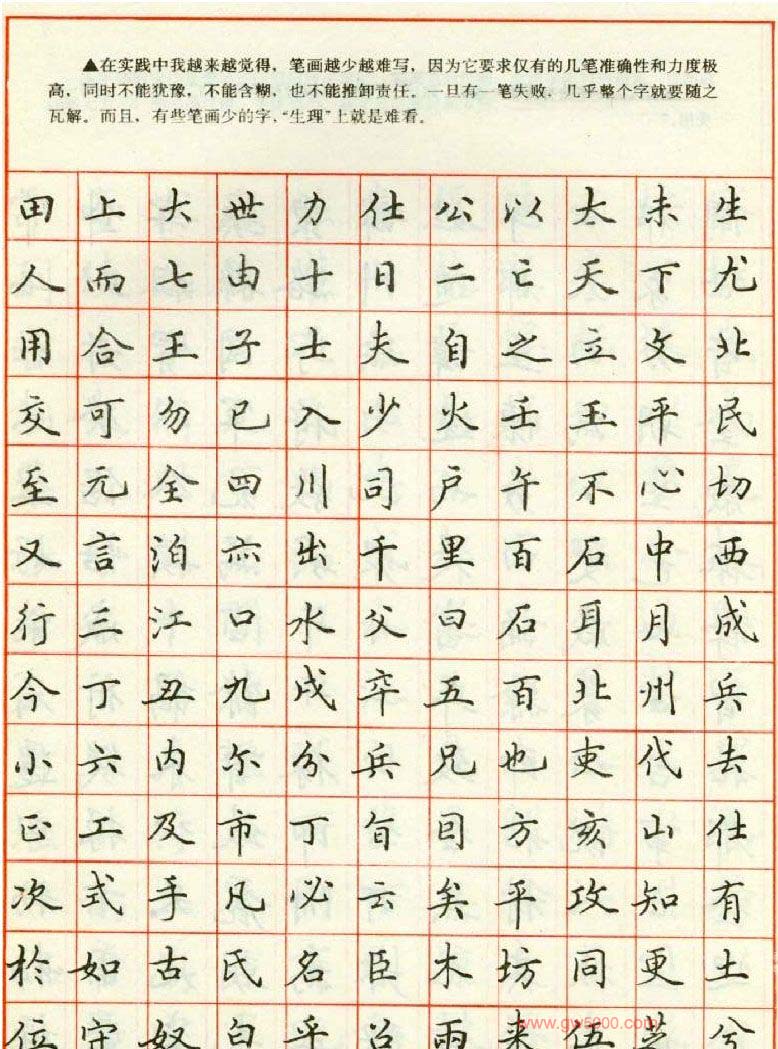 ▲在实践中我越来越觉得，笔画越少越难写，因为它要求仅有的几笔准确性和力度极
高，同时不能犹豫，不能含糊，也不能推卸责任。一旦有一笔失败，几乎整个字就要随之
瓦解。而且，有些笔画少的字，“生理”上就是难看。
田上大世力仕公以太未生
人而七由十日二亡天下尤
用合王子士夫自之立文北
交可勿已入少火壬玉平民
至元全四川司户午不心切
又言泊亦出千里百石中西
行三江口水父曰石耳月成
今丁丑九戍卒五百北州兵
小六内尔分兵兄也吏代去
正工及市丁旬目方亥山仕
次式手凡必云矣平攻知有
於如古氏名臣木坊同更土
位守奴白乎召雨来伍芝兮
www.gw5000.com